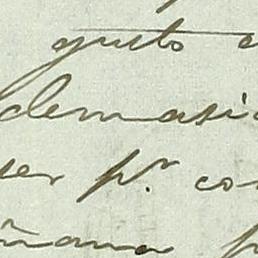 gusto
demasi
ser p.r co
ñana p